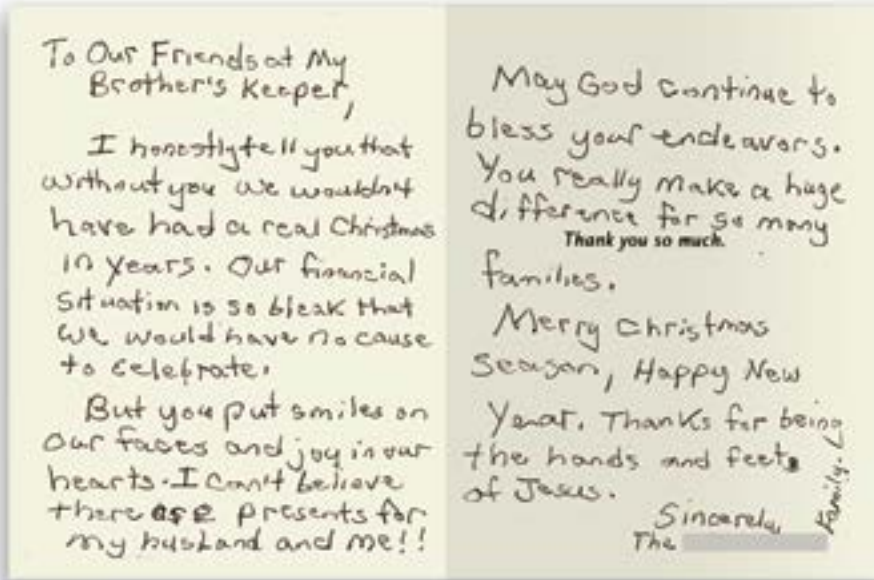 To Our Friends at My
Brother's Keeper,
I honestly tell you that
without you we wouldn't
have had a real Christmas
in years. Our financial
situation is so bleak that
we would have no cause
to celebrate.
But you put smiles on
our faces and joy in our
hearts. I can't believe
there are presents for
my husband and me!!
May God continue to
bless your endeavors.
You really make a huge
difference for so many
Thank you so much.
families.
Merry Christmas
Season, Happy New
Year. Thanks for being
the hands and feet
of Jesus.
Sincerely,
The
Family.